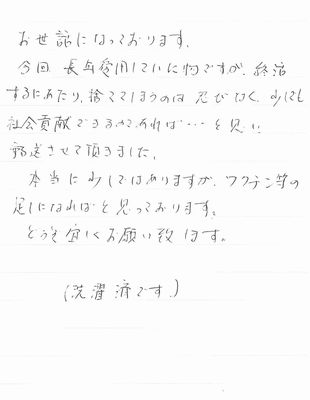 お世話になっております。
今回 長年愛用していた物ですが、終活
するにあたり、捨ててしまうのは 忍びなく、少しでも
社会貢献できるのであれば…と思い
郵送させて頂きました。
本当に少しではありますが、ワクチン等の
足しになればと思っております。
どうぞ宜しくお願い致します。
（洗濯済です。）